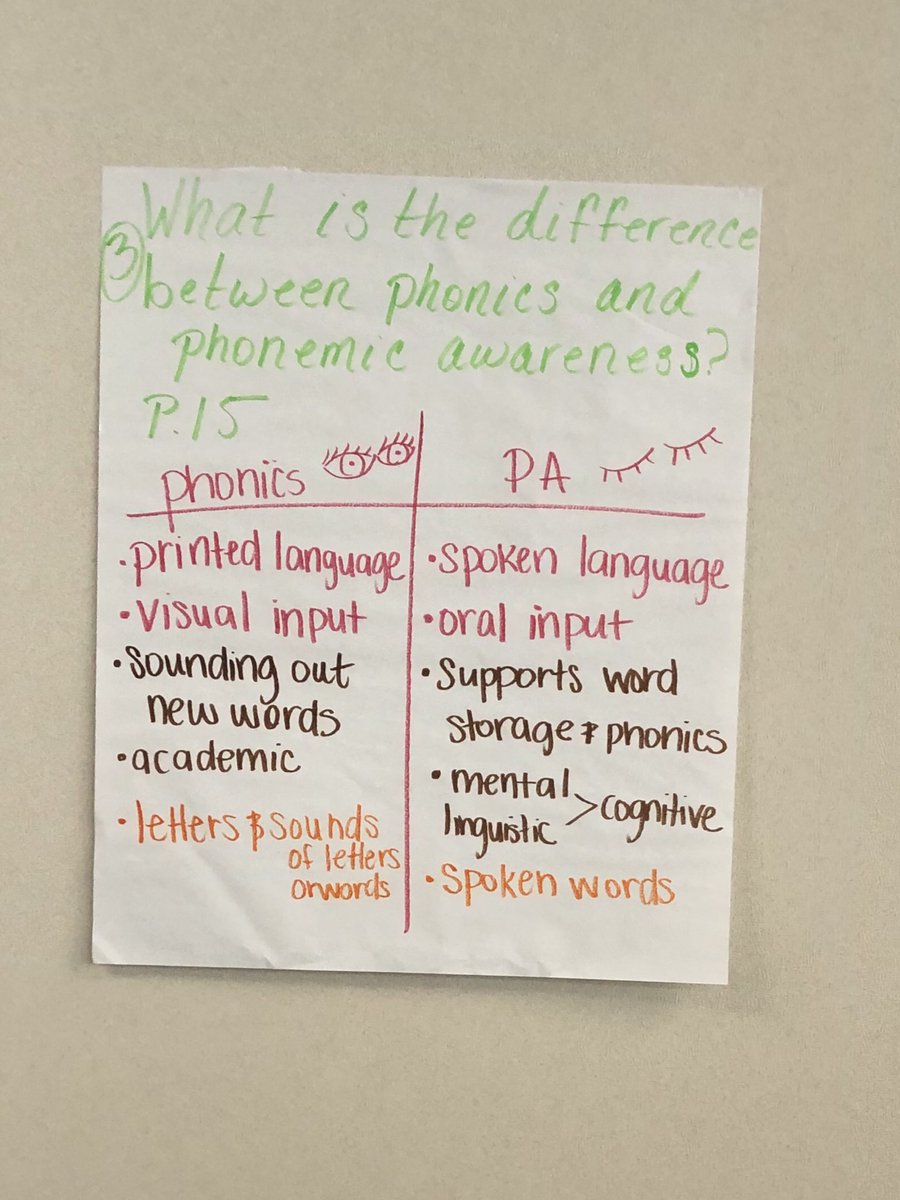 What is the difference
③ between phonics and
phonemic awareness?
P.15
phonics
• printed language
• visual input
• sounding out
new words
• academic
• letters & sounds
of letters
or words
PA
• spoken language
• oral input
• Supports word
storage & phonics
• mental
linguistic > cognitive
• Spoken words